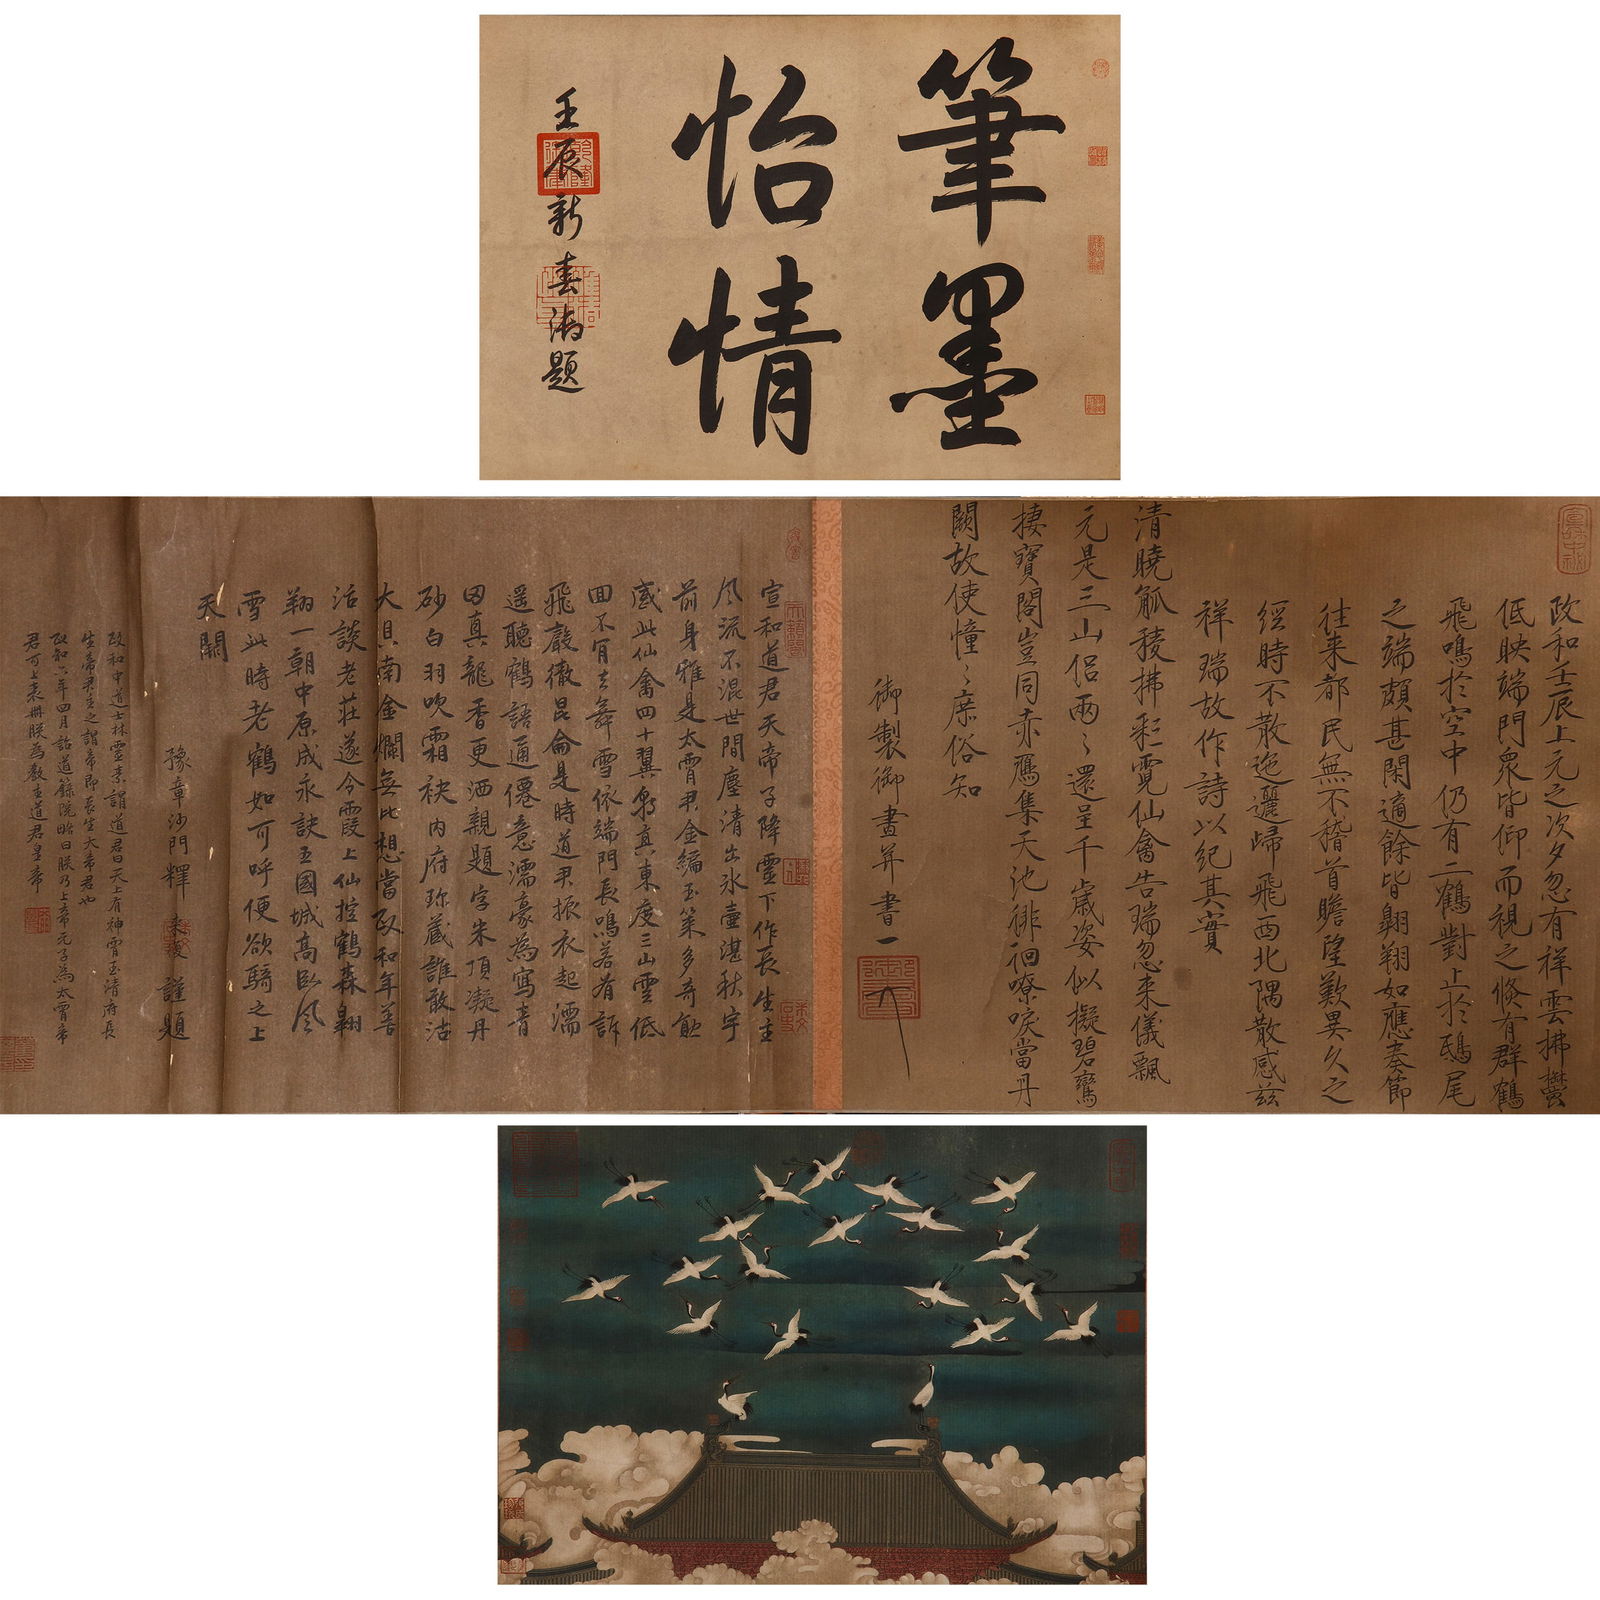 筆墨
怡情
壬辰新春題
政和壬辰上元之次夕忽有祥雲拂鬱
低映端門眾皆仰而視之倏有群鶴
飛鳴於空中仍有二鶴對止於鴟尾
之端頗甚閑適餘皆翺翔如應奏節
往来都民無不稽首瞻望歎異久之
經時不散迤邐歸飛西北隅散感兹
祥瑞故作詩以紀其實
清曉觚稜拂彩霓仙禽告瑞忽来儀飄
元是三山侶兩〻還呈千歲姿似擬碧鸞
棲寶閣豈同赤鴈集天池徘徊嘹唳當丹
闕故使憧〻庶俗知
御製御畫并書
宣和道君天帝子降靈下作長生主
風流不混世間塵清出冰壺湛秋宇
前身雅是太霄君金編玉策多奇能
感此仙禽四十翼真東度三山雲低
回不肯去舞雪依端門長鳴若有訴
飛嚴徹昆侖是時道君振衣起濡
遥聽鶴語通僊意濡豪為寫青
田真龍香更洒親題字朱頂凝丹
砂白羽吹霜袂内府珍藏誰敢沽
大貝南金爛無比想當政和年善
活談老莊遂令霞上仙控鶴森翺
翔一朝中原成永訣五國城高臥風
雪此時老鶴如可呼便欲騎之上
天闕
豫章沙門釋来復謹題
政和中道士林靈素謂道君曰天上有神霄玉清府長
生帝君主之謂帝即長生大帝君也
政和六年四月詣道籙院略曰朕乃上帝元子為太霄帝
君可上表冊朕為教主道君皇帝